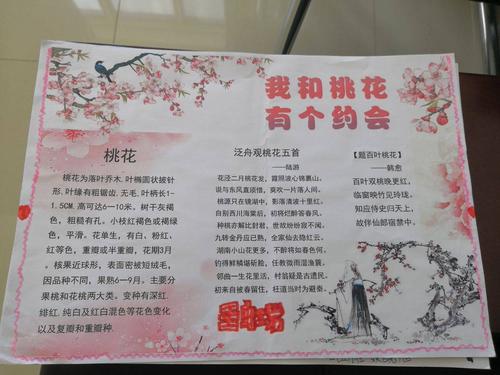 我和桃花
有个约会
桃花
桃花为落叶乔木，叶椭圆状披针
形，叶缘有粗锯齿，无毛，叶柄长1-
1.5CM，高可达6—10米。树干灰褐
色，粗糙有孔。小枝红褐色或褐绿
色，平滑。花单生，有白、粉红、
红等色，重瓣或半重瓣，花期3月
。核果近球形，表面密被短绒毛，
因品种不同，果熟6—9月。主要分
果桃和花桃两大类。变种有深红、
绯红、纯白及红白混色等花色变化
以及复瓣和重瓣种。
泛舟观桃花五首
——陆游
花泾二月桃花发，霞照波心锦裹山。
说与东风直须惜，莫吹一片落人间。
桃源只在镜湖中，影落清波十里红。
自别西川海棠后，初将烂醉答春风。
种桃亦解比封君，世故纷纷寂不闻。
九转金丹应已熟，全家仙去隐红云。
湖南小山花更多，不醉将如春色何。
钓得鲜鳞堪斫脍，任教微雨湿渔蓑。
邻曲一生花里活，村翁疑是古遗民。
初来自被春留住，枉道当时为避秦。
【题百叶桃花】
——韩愈
百叶双桃晚更红，
临窗映竹见玲珑。
知应侍史归天上，
故伴仙郎宿禁中。